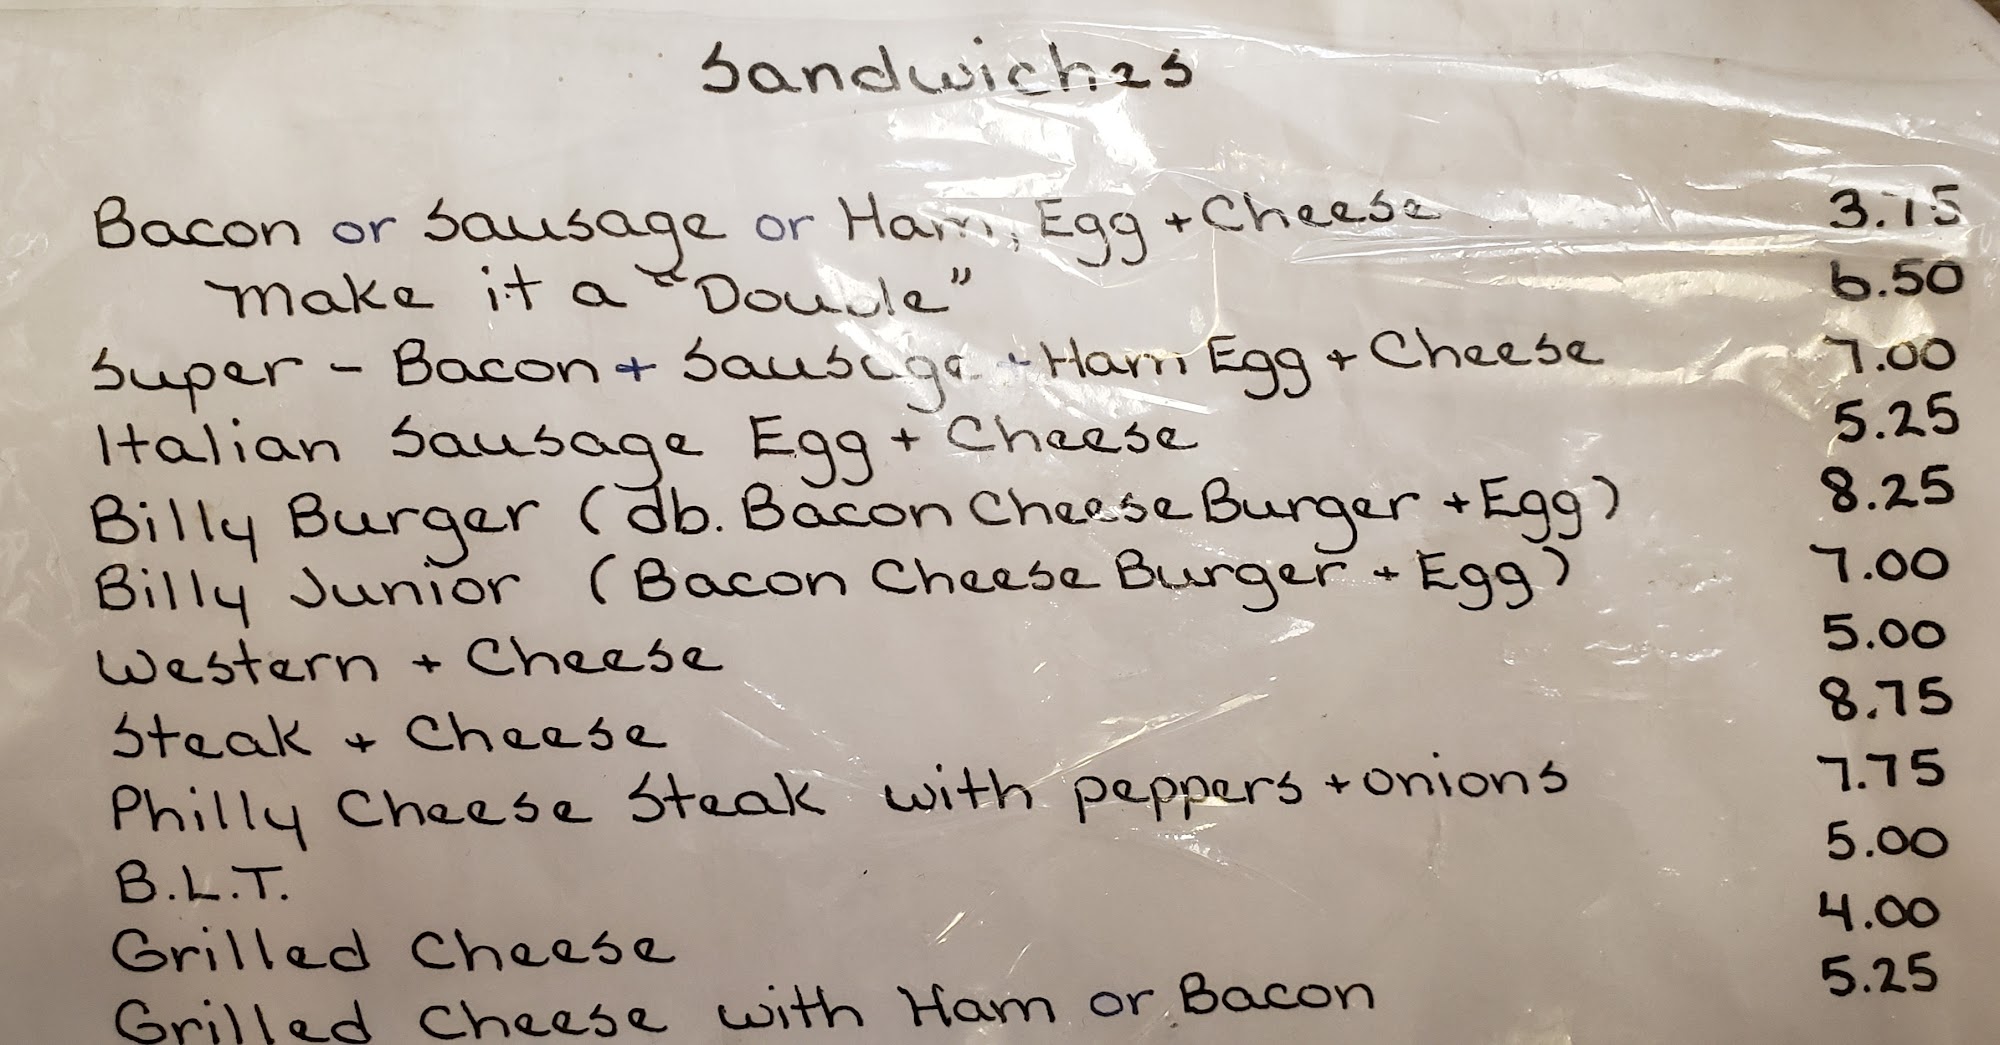 Sandwiches
Bacon or Sausage or Ham, Egg + Cheese 3.75
make it a "Double" 6.50
Super - Bacon + Sausage + Ham Egg + Cheese 7.00
Italian Sausage Egg + Cheese 5.25
Billy Burger (db. Bacon Cheese Burger + Egg) 8.25
Billy Junior (Bacon Cheese Burger + Egg) 7.00
Western + Cheese 5.00
Steak + Cheese 8.75
Philly Cheese Steak with peppers + onions 7.75
B.L.T. 5.00
Grilled Cheese 4.00
Grilled Cheese with Ham or Bacon 5.25